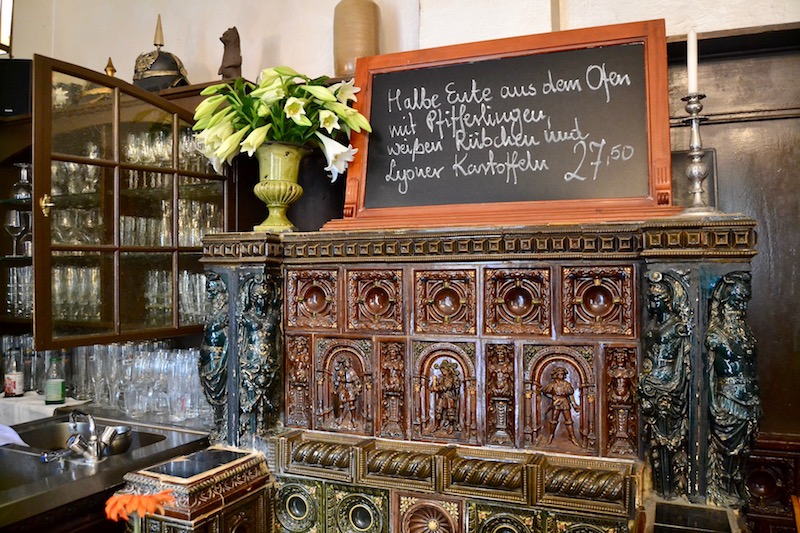 Halbe Ente aus dem Ofen
mit Pfifferlingen,
weißen Rübchen und
Lyoner Kartoffeln 27,50